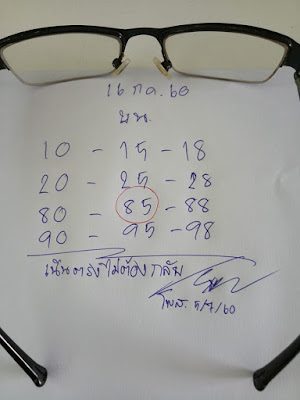 16 ก.ค. 60
บน.
10 - 15 - 18
20 - 25 - 28
80 - 85 - 88
90 - 95 - 98
เน้นตรงไม่ต้องกลับ
โพส. 5/7/60